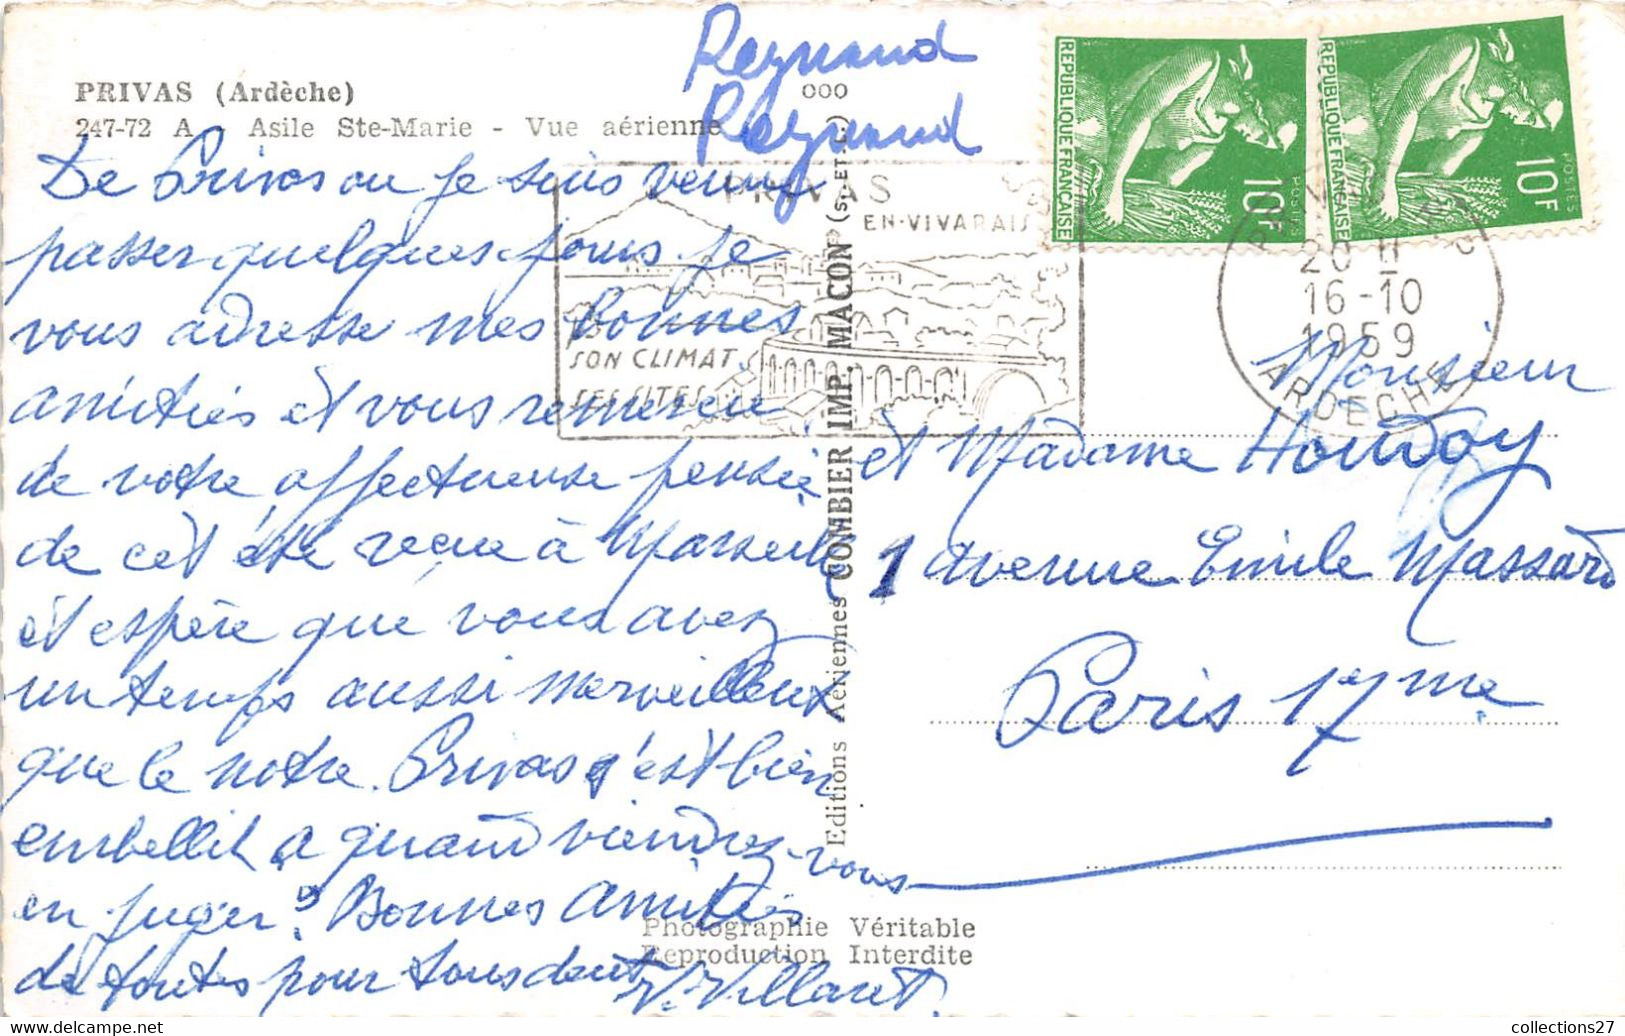 PRIVAS (Ardèche)
247-72 A - Asile Ste-Marie - Vue aérienne
Reynaud
Reynaud
De Privas ou je suis venue
passer quelques jours je
vous adresse mes bonnes
amitiés et vous remercie
de votre affectueuse pensée
de cet été reçue à Marseille
et espère que vous avez
un temps aussi merveilleux
que le notre. Privas s'est bien
embellit, a quand viendrez-vous
en juger? Bonnes amitiés
de toutes pour tous deux
V. Villaret.
ooo
Editions Aériennes COMBIER IMP. MACON (S.-ET-L.)
PRIVAS
EN-VIVARAIS
SON CLIMAT
SES SITES
REPUBLIQUE FRANÇAISE
10F
POSTES
REPUBLIQUE FRANÇAISE
10F
POSTES
20 H
16-10
1959
ARDECHE
Monsieur
et Madame Houdoy
1 avenue Emile Massard
Paris 17me
Photographie Véritable
Reproduction Interdite
collections27